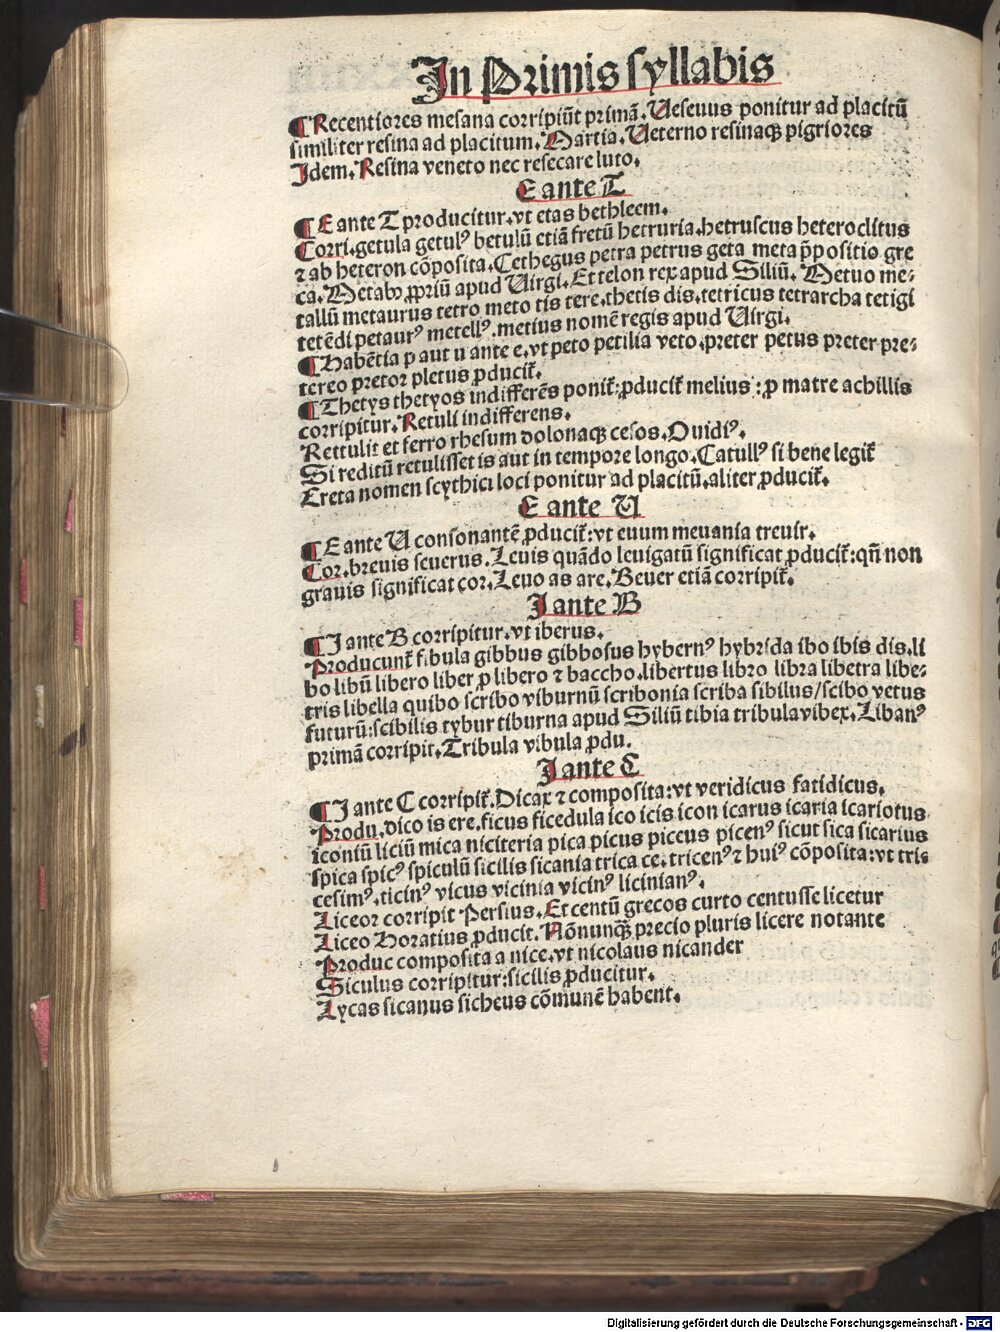 In Primis syllabis
¶Recentiores mesana corripiūt primā. Veseuus ponitur ad placitū
similiter resina ad placitum. Martia. Veterno resinaqꝫ pigriores
Idem. Resina veneto nec resecare luto.
E ante T
¶E ante T producitur. vt etas bethleem.
Corri. getula getulꝰ betulū etiā fretū hetruria. hetruscus heteroclitus
⁊ ab heteron cōposita. Cethegus petra petrus geta meta p̄positio gre
ca. Metabꝰ ꝓpriū apud Virgi. Et telon rex apud Siliū. Metuo me⸗
tallū metaurus tetro meto tis tere. thetis dis. tetricus tetrarcha tetigi
tetēdi petaurꝰ metellꝰ. metius nomē regis apud Virgi.
¶Habētia p aut u ante e. vt peto petilia veto. preter petus preter pre⸗
tereo pretor pletus ꝓducit̄.
¶Thetys thetyos indifferēs ponit̄: ꝓducit̄ melius: ꝓ matre achillis
corripitur. Retuli indifferens.
Rettulit et ferro rhesum dolonaqꝫ cesos. Ouidiꝰ.
Si reditū retulisset is aut in tempore longo. Catullꝰ si bene legit̄
Creta nomen scythici loci ponitur ad placitū. aliter ꝓducit̄.
E ante V
¶E ante V consonantē ꝓducit̄: vt euum meuania treuir.
Cor. breuis seuerus. Leuis quādo leuigatū significat ꝓducit̄: qn̄ non
grauis significat cor. Leuo as are. Beuer etiā corripit̄.
I ante B
¶I ante B corripitur. vt iberus.
Producunt̄ fibula gibbus gibbosus hybernꝰ hybrida ibo ibis dis. li
bo libū libero liber ꝓ libero ⁊ baccho. libertus libro libra libetra libe⸗
tris libella quibo scribo viburnū scribonia scriba sibilus/scibo vetus
futurū: scibilis tybur tiburna apud Siliū tibia tribula vibex. Libanꝰ
primā corripit. Tribula vibula ꝓdu.
I ante C
¶I ante C corripit̄. Dicax ⁊ composita: vt veridicus fatidicus.
Produ. dico is ere. ficus ficedula ico icis icon icarus icaria icariotus
iconiū liciū mica niciteria pica picus piceus picenꝰ sicut sica sicarius
spica spicꝰ spiculū sicilis sicania trica ce. tricenꝰ ⁊ huiꝰ cōposita: vt tri⸗
cesimꝰ. ticinꝰ vicus vicinia vicinꝰ licinianꝰ.
Liceor corripit Persius. Et centū grecos curto centusse licetur
Liceo Horatius ꝓducit. Nōnunqꝫ precio pluris licere notante
Produc composita a nice. vt nicolaus nicander
Siculus corripitur: sicilis ꝓducitur.
Lycas sicanus sicheus cōmunē habent.
Digitalisierung gefördert durch die Deutsche Forschungsgemeinschaft - DFG